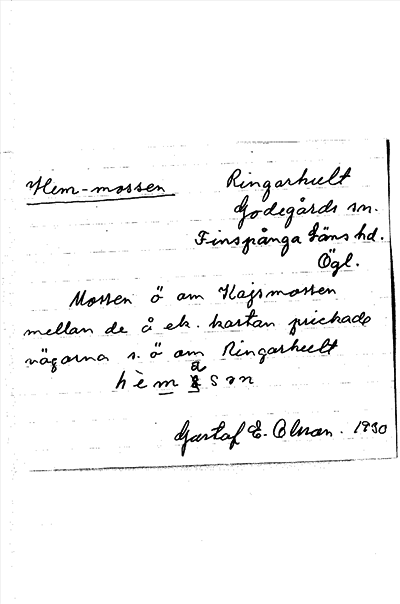 Hem-mossen
Ringarhult
Godegårds sn.
Finspånga läns hd.
Ögl.
Mossen ö om Kajsmossen
mellan de å ek. kartan prickade
vägarna s. ö om Ringarhult
Gustaf E. Olsson. 1930